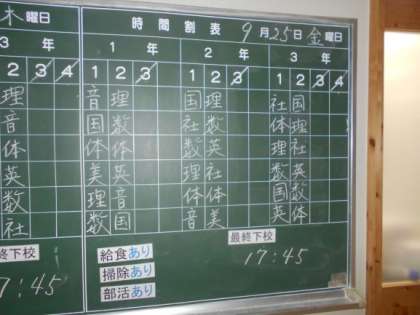 木曜日 時間割表 9月25日金曜日
3年 1年 2年 3年
2 3 4 1 2 3 1 2 3 1 2 3 4
理 音 理 国 理 社 国
音 国 数 社 数 体 理
体 体 体 数 英 理 社
英 美 英 理 社 数 英
数 理 音 体 体 国 数
社 数 国 音 美 英 体
終下校 給食あり 最終下校
7:45 掃除あり 17:45
部活あり